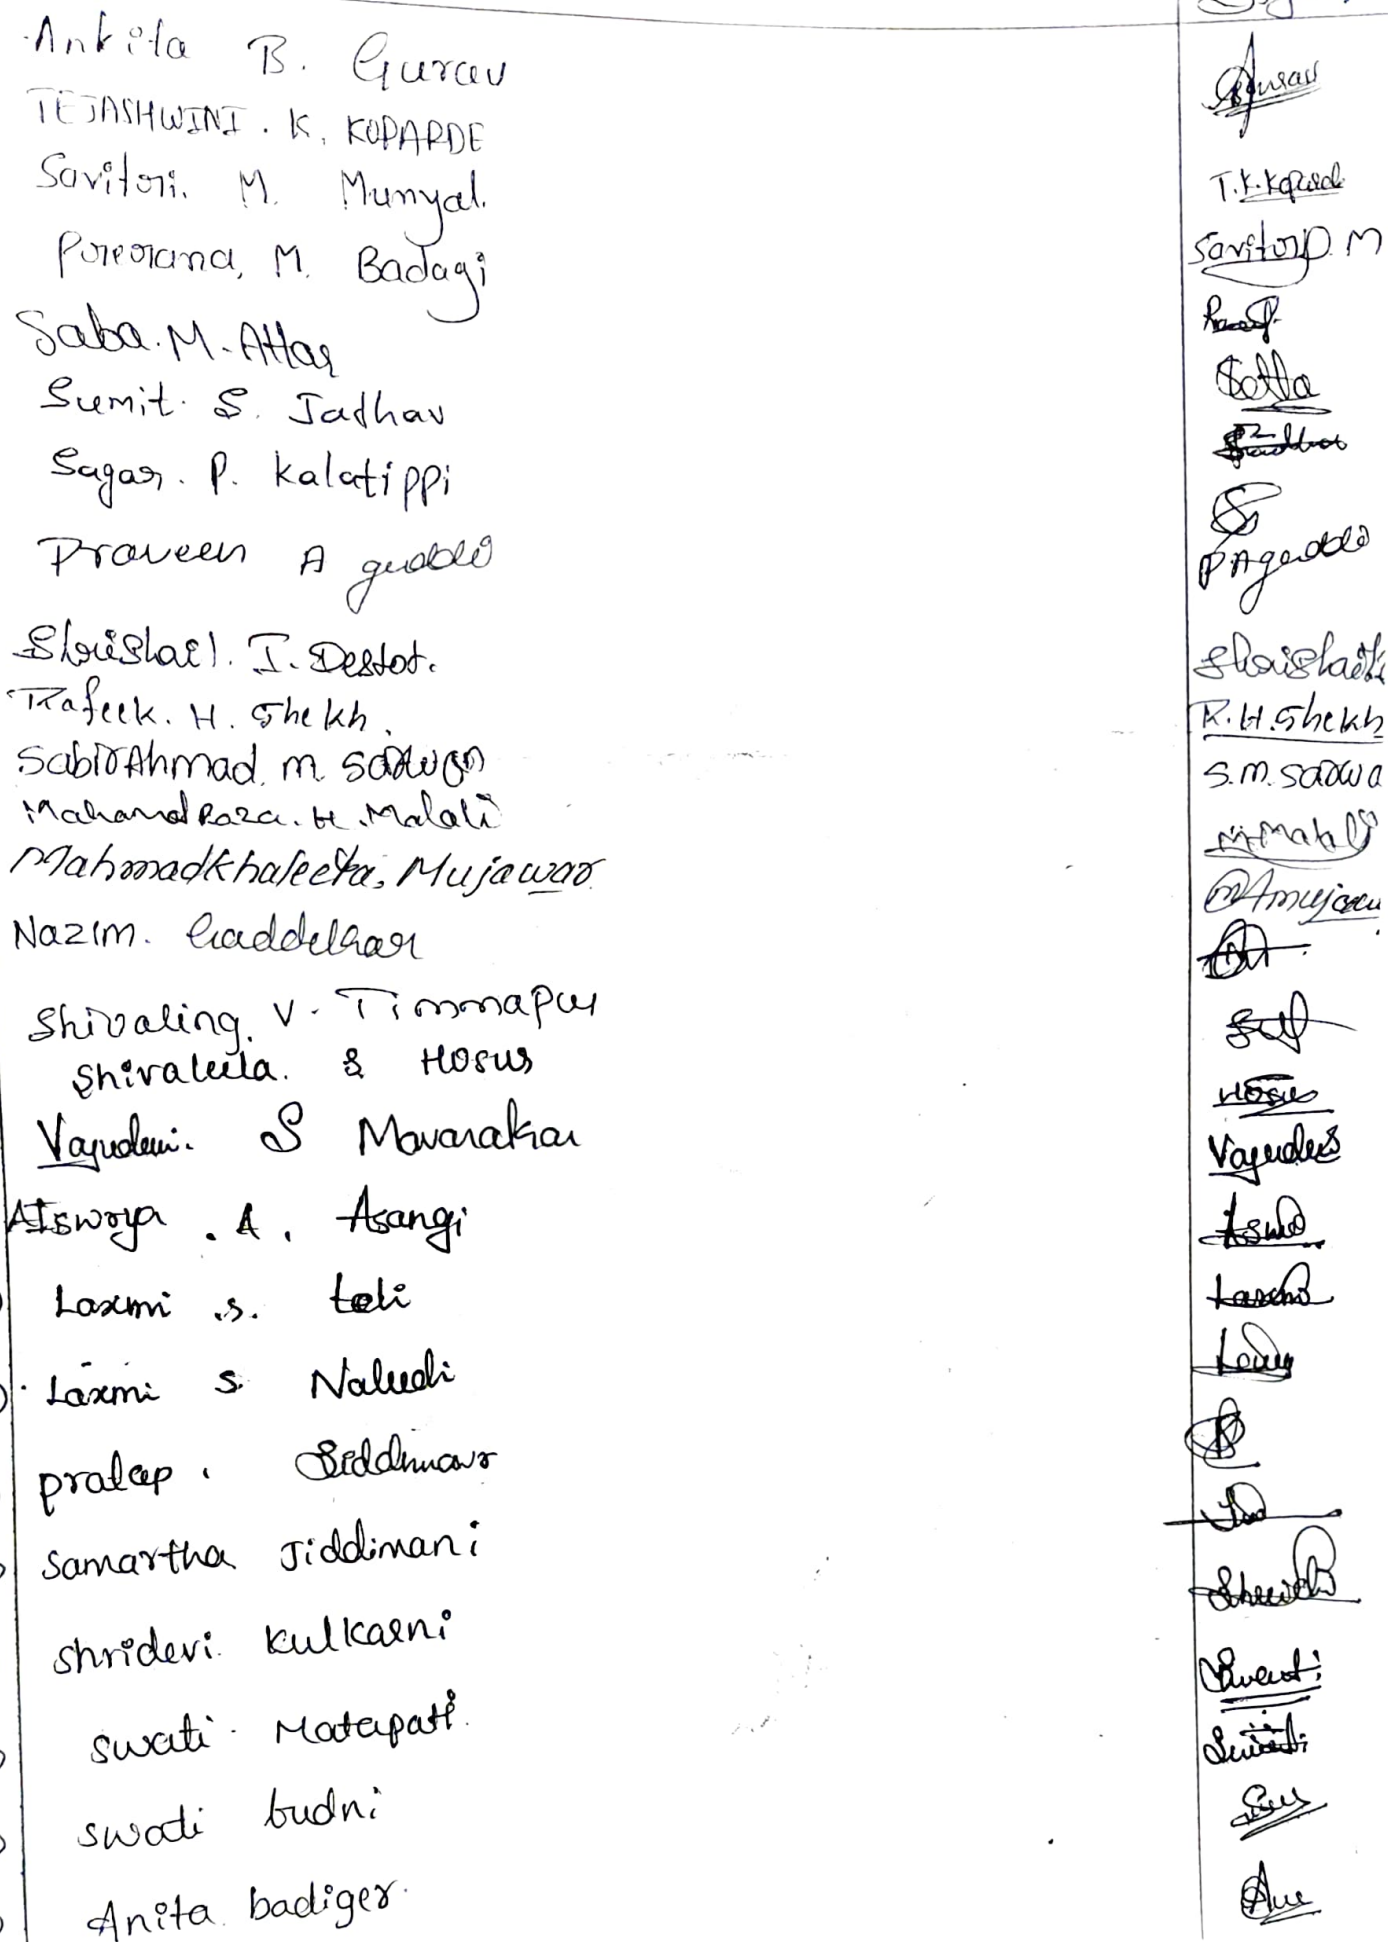 Ankita B. Gurav
TEJASHWINI. K. KOPARDE
Savitori. M. Munyal. T.K.Koparde
Prerana, M. Badagi Savitori. M
Saba. M. Attar
Sumit. S. Jadhav
Sagar. P. Kalatippi
Praveen A guddi PAguddi
Shrishail. I. Destot. Shrishail
Rafeek. H. Shekh. R.H.Shekh
SabirAhmad. m. sarwan S.m. sarwa
Mahamad Raza. H. Malali M.Malali
Mahmadkhaleefa. Mujawar mAmujawar
Nazim. Gaddekar
Shivaling. V. Timmapur
Shivaleela. S Hosur Hosur
Vayudevi. S Mavarakar Vayudevi
AIswrya. A. Asangi
Laxmi .s. teli
Laxmi s. Naludi
pratap. Siddhnavr
samartha Jiddimani
shridevi. kulkarni
swati. Matapati.
swati budni
Anita badiger.